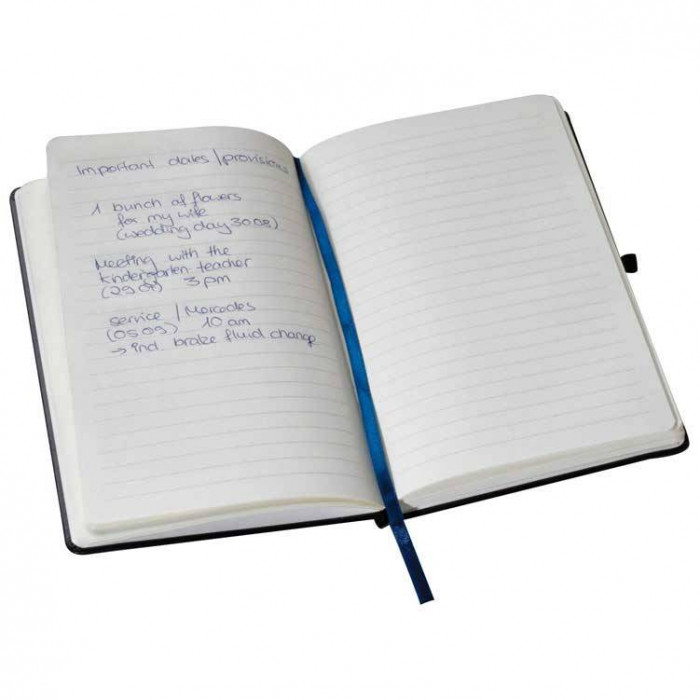 Important dates / provisions
1 bunch of flowers
for my wife
(wedding day 30 08)
Meeting with the
kindergarten teacher
(29 07) 3 pm
service / Mercedes
(05 09) 10 am
→ incl. brake fluid change